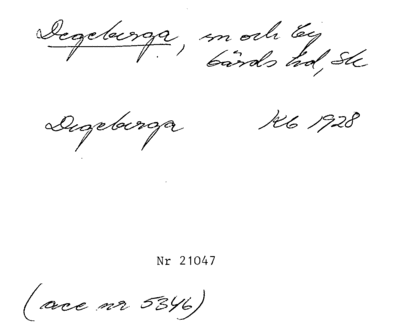 Degeberga, sn och by
Gärds hd, Sk
Degeberga Kb 1928
Nr 21047
(acc nr 5346)